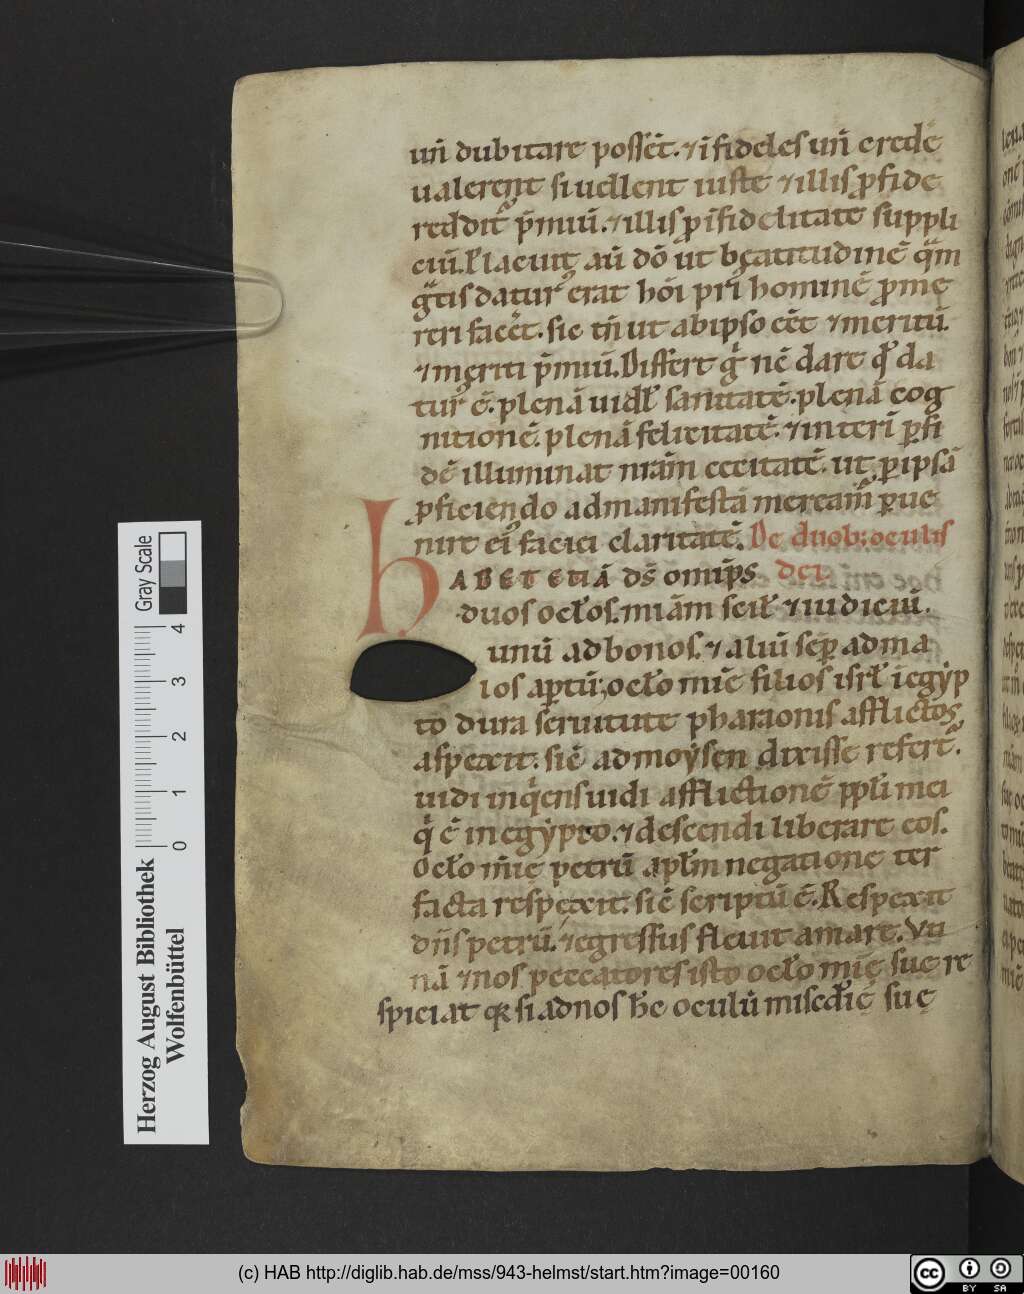 un̄ dubitare possēt. ⁊ īfideles un̄ crede
ualerent si uellent iuste ⁊ illis p̄ fide
reddit p̄miū. ⁊ illis p̄ īfidelitate suppli
ciū. aū dō ut bęatitudinē
datur erat hōi pri hominē
reri sic tn̄ ut ab ipso eēt ⁊ meritū.
⁊ meriti p̄miū. Differt nē dare qđ da
tur ē. plenā uidł sanitatē. plenā cog
nitionē. plenā felicitatē. ⁊ interī ꝑ fi
dē illuminat nr̄am cecitatē. ut ꝑ ipsā
ꝓficiendo ad manifestā ꝑue
nire ei faciei claritatē. De duob; oculis
HABET ETIĀ dš omīps dei
duos ocłos. mi̅am scił ⁊ iudiciū.
unū ad bonos. ⁊ aliū seꝑ ad ma
los aꝑtū; ocło mi̅e filios isrł ī egẏp
to dura seruitute pharaonis afflictos
aspexit. sic̄ ad moẏsen dixisse refert.
uidi inqͥens uidi afflictionē ppłi mei
qͥ ē in egẏpto. ⁊ descendi liberare eos.
Ocło mi̅e petrū apłm negatione ter
facta respexit. sic̄ scriptū ē. Respexit
dn̄s petrū. ⁊ egressus fleuit amare. Vti
nā ⁊ nos peccatores isto ocło mi̅e sue re
spiciat si ad nos oculū mi̅sc̄die suę
Gray Scale
0 1 2 3 4
Herzog August Bibliothek
Wolfenbüttel
(c) HAB http://diglib.hab.de/mss/943-helmst/start.htm?image=00160
cc
BY SA